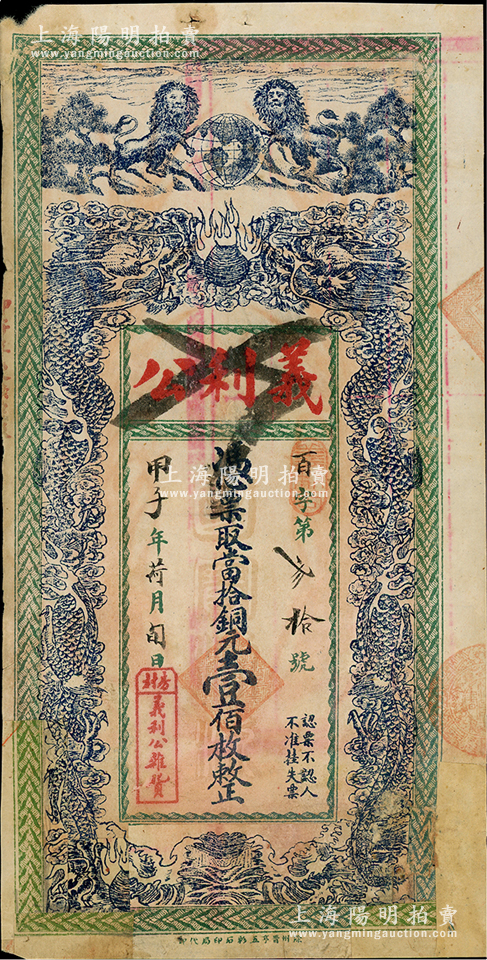 上海陽明拍賣
www.yangmingauction.com
義利公
百字第弍拾號
認票不認人
不准挂失票
憑票取當拾銅元壹佰枚整
甲子年荷月旬日
義利公雜貨
上海陽明拍賣
www.yangmingauction.com
上海陽明拍賣
www.yangmingauction.com
五彩石印局代印